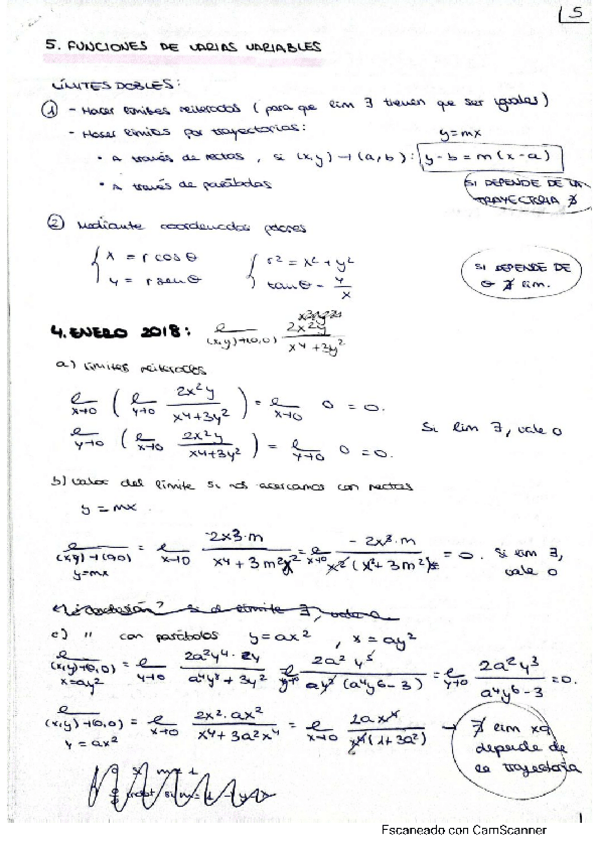 5
5. FUNCIONES DE VARIAS VARIABLES
LÍMITES DOBLES:
① - Hacer límites reiterados (para que lim ∃ tienen que ser iguales)
- Hacer límites por trayectorias:
y=mx
• A través de rectas, si (x,y)→(a,b): y-b=m(x-a)
• A través de parábolas
SI DEPENDE DE LA TRAYECTORIA ∄
② Mediante coordenadas polares
x = r cos θ
r² = x² + y²
y = r sen θ
tan θ = y/x
SI DEPENDE DE θ ∄ lim.
4. ENERO 2018: lim (x,y)→(0,0) 2x²y / x⁴+3y²
a) límites reiterados
lim x→0 ( lim y→0 2x²y / x⁴+3y² ) = lim x→0 0 = 0.
Si lim ∃, vale 0
lim y→0 ( lim x→0 2x²y / x⁴+3y² ) = lim y→0 0 = 0.
b) valor del límite si nos acercamos con rectas
y = mx
lim (x,y)→(0,0) y=mx = lim x→0 2x³·m / x⁴+3m²x² = lim x→0 2x³·m / x²(x²+3m²) = 0. Si lim ∃, vale 0
c) " con parábolas y=ax², x=ay²
lim (x,y)→(0,0) x=ay² = lim y→0 2a²y⁴·y / a⁴y⁸+3y² = lim y→0 2a²y⁵ / y²(a⁴y⁶-3) = lim y→0 2a²y³ / a⁴y⁶-3 = 0.
lim (x,y)→(0,0) y=ax² = lim x→0 2x²·ax² / x⁴+3a²x⁴ = lim x→0 2ax⁴ / x⁴(1+3a²) → ∄ lim xq depende de la trayectoria
1
Escaneado con CamScanner